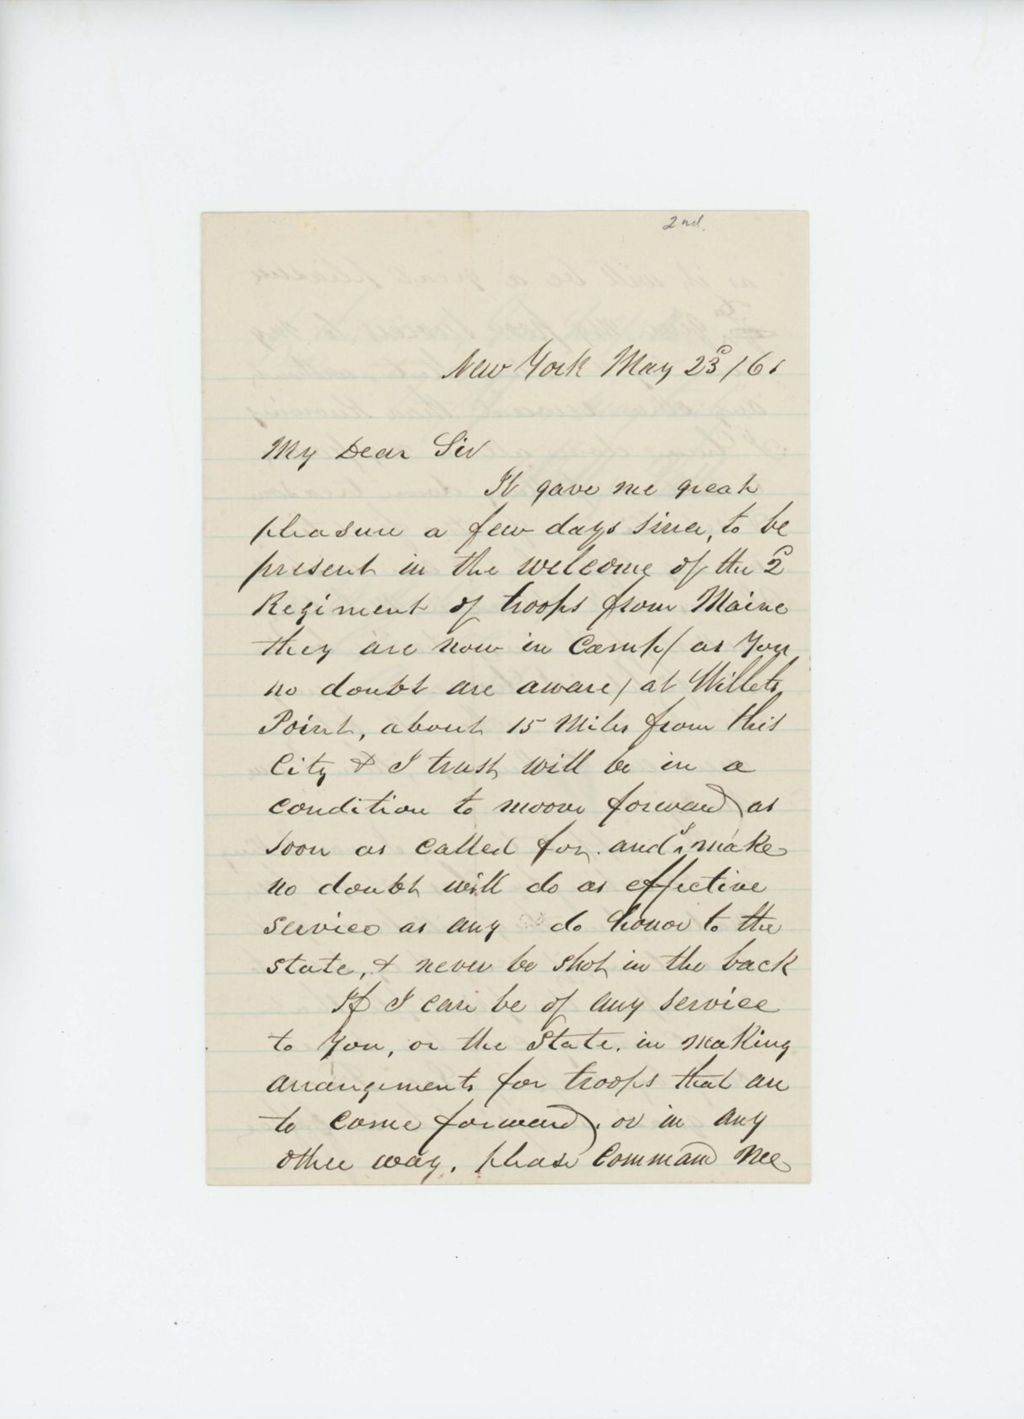 2nd.
New York May 23d /61
My Dear Sir
It gave me great
pleasure a few days since, to be
present in the welcome of the 2d
Regiment of troops from Maine
they are now in Camp (as You
no doubt are aware) at Willets
Point, about 15 Miles from this
City & I trust will be in a
condition to moove forward as
soon as called for. and I make
no doubt will do as effective
service as any do honor to the
state, & never be shot in the back
If I can be of any service
to You, or the State, in making
arrangements for troops that are
to come forward, or in any
other way, please Command Me